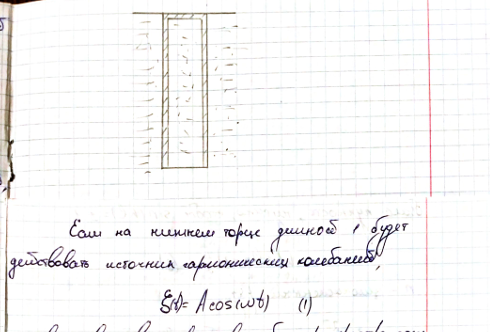 Если на нижнем торце длиной l будет
действовать источник гармонических колебаний,
ξ(t)= A cos(ωt) (1)